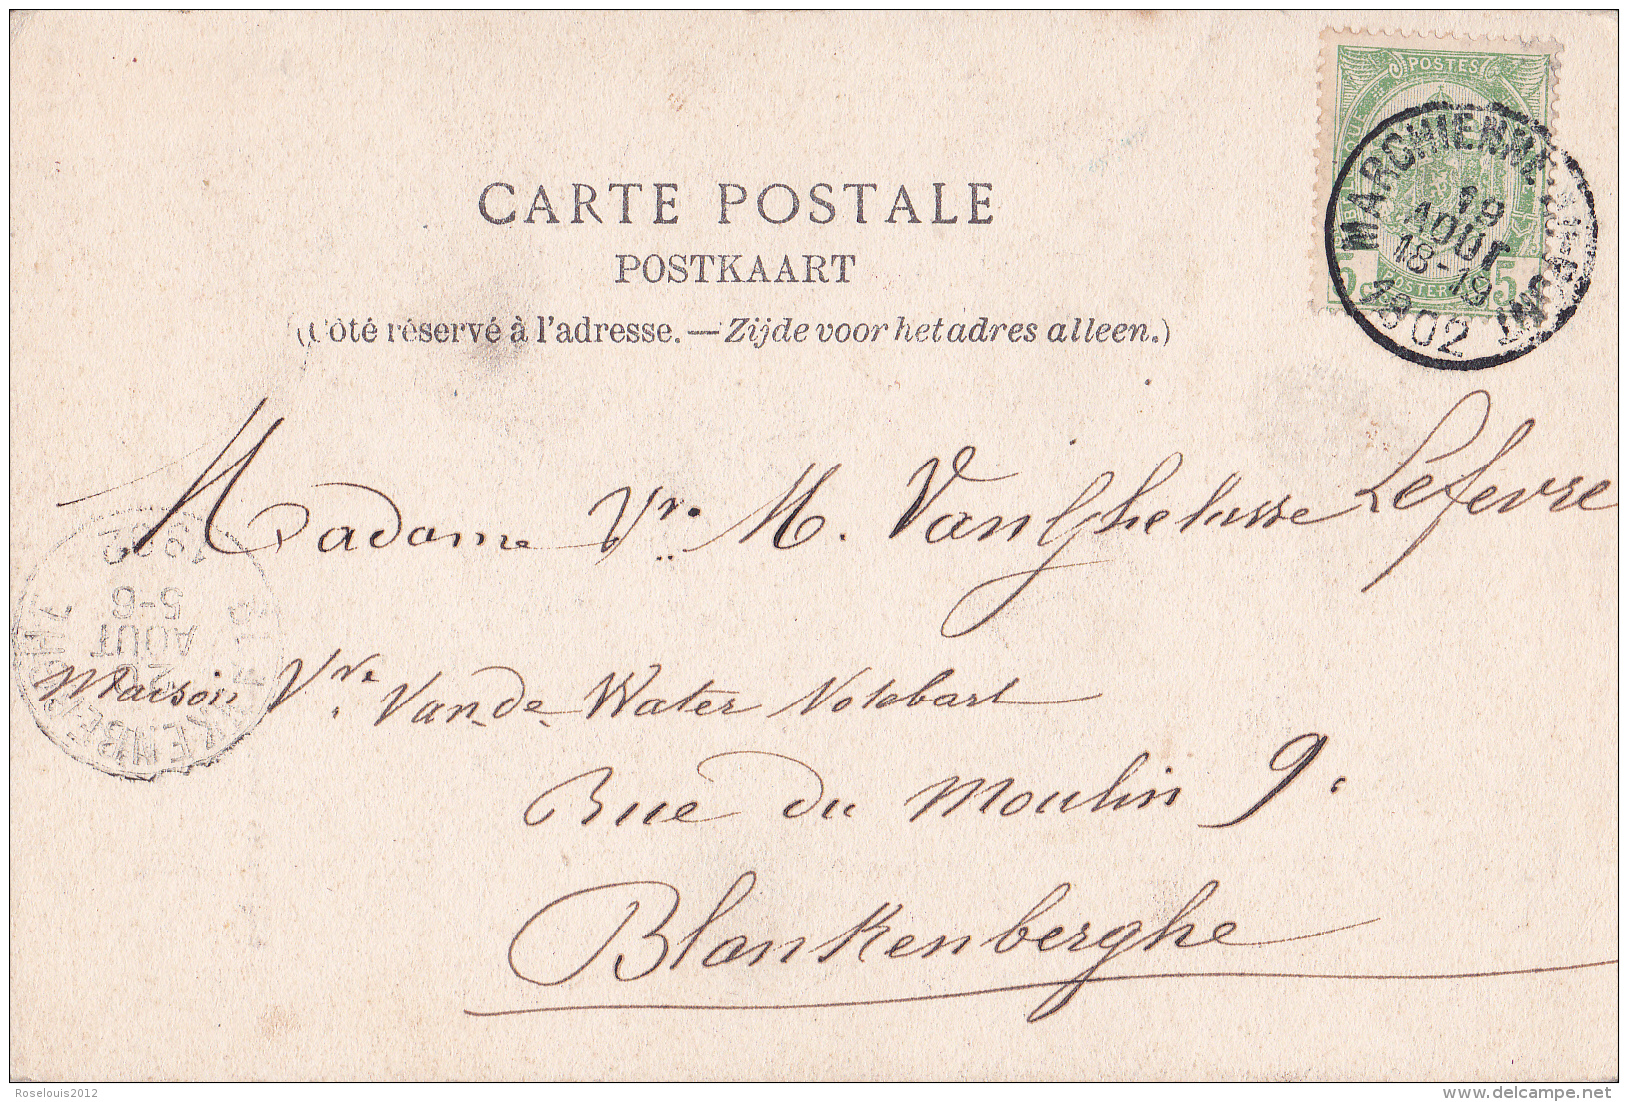 POSTES
5 c. POSTERIJEN 5
MARCHIENNE-AU-PONT
19
AOUT
18-19
1902
CARTE POSTALE
POSTKAART
(Côté réservé à l'adresse.—Zijde voor het adres alleen.)
Madame Vve M. Van Ghelusse Lefevre
1902
5-6
AOUT
20
BLANKENBERGHE
Maison Vve Van de Water Notebart
Rue du Moulin 9.
Blankenberghe
Roselouis2012
www.delcampe.net